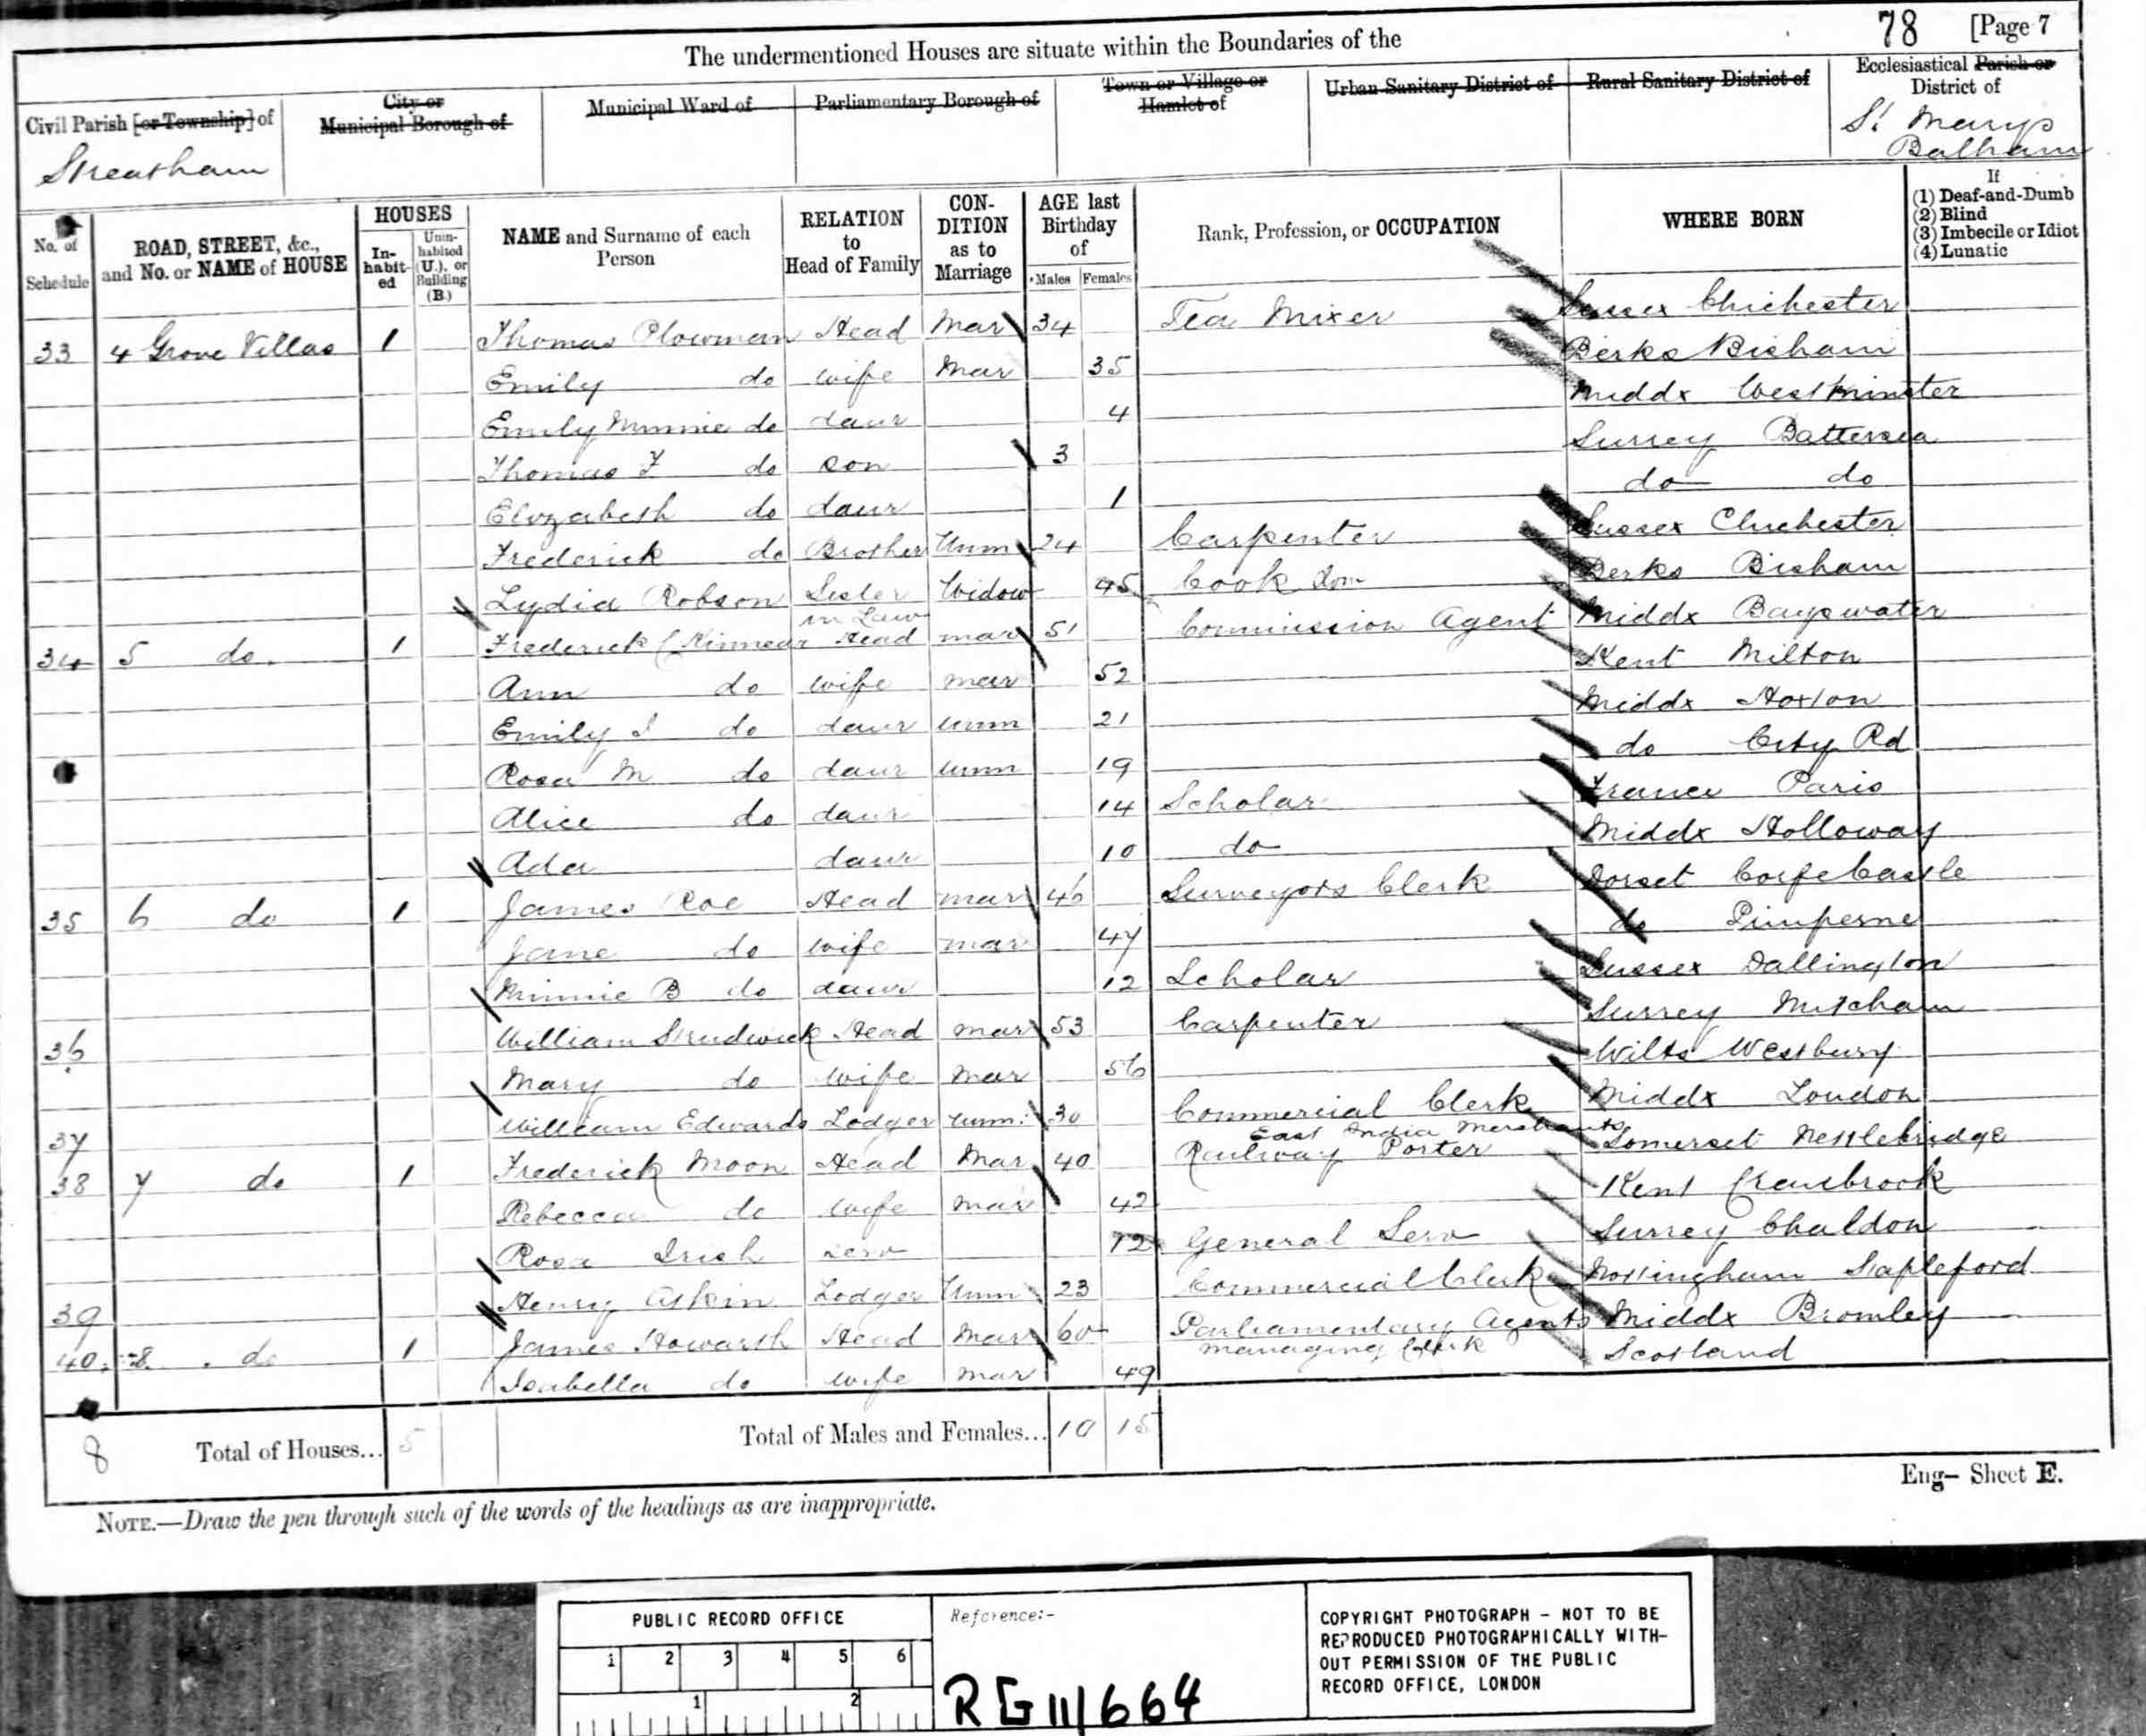 78 [Page 7
The undermentioned Houses are situate within the Boundaries of the
Civil Parish [or Township] of
City or Municipal Borough of
Municipal Ward of
Parliamentary Borough of
Town or Village or Hamlet of
Urban Sanitary District of
Rural Sanitary District of
Ecclesiastical Parish or District of
Streatham
St Marys
Balham
No. of Schedule
ROAD, STREET, &c., and No. or NAME of HOUSE
HOUSES
In-habit-ed
Unin-habited (U.), or Building (B.)
NAME and Surname of each Person
RELATION to Head of Family
CON-DITION as to Marriage
AGE last Birthday of
Males Females
Rank, Profession, or OCCUPATION
WHERE BORN
If
(1) Deaf-and-Dumb
(2) Blind
(3) Imbecile or Idiot
(4) Lunatic
33 4 Grove Villas 1 Thomas Plowman Head Mar 34 Tea Mixer Sussex Chichester
Emily do wife Mar 35 Berks Bisham
Emily Minnie do daur 4 Middx Westminster
Thomas F do son 3 Surrey Battersea
Elizabeth do daur 1 do do
Frederick do Brother Unm 24 Carpenter Sussex Chichester
Lydia Robson Sister in Law Widow 45 Cook Dom Berks Bisham
34 5 do. 1 Frederick Kinnear Head mar 51 Commission Agent Middx Bayswater
Ann do wife mar 52 Kent Milton
Emily J do daur unm 21 Middx Hoxton
Rosa M do daur unm 19 do City Rd
Alice do daur 14 Scholar France Paris
Ada daur 10 do Middx Holloway
35 6 do 1 James Roe Head mar 46 Surveyors Clerk Dorset Corfe Castle
Jane do wife mar 47 do Pimperne
Minnie B do daur 12 Scholar Sussex Dallington
36 William Strudwick Head mar 53 Carpenter Surrey Mitcham
Mary do wife Mar 56 Wilts Westbury
37 William Edwards Lodger unm 30 Commercial Clerk East India Merchants Middx London
38 7 do 1 Frederick Moon Head Mar 40 Railway Porter Somerset Nettlebridge
Rebecca do wife Mar 42 Kent Cranbrook
Rosa Irish serv 12 General Serv Surrey Chaldon
39 Henry Atkin Lodger Unm 23 Commercial Clerk Nottingham Stapleford
40 8 do 1 James Howarth Head Mar 60 Parliamentary Agents managing Clerk Middx Bromley
Isabella do wife mar 49 Scotland
8 Total of Houses... 5 Total of Males and Females... 10 15
Eng– Sheet E.
NOTE.—Draw the pen through such of the words of the headings as are inappropriate.
PUBLIC RECORD OFFICE
1 2 3 4 5 6
1 2
Reference:-
RG 11/664
COPYRIGHT PHOTOGRAPH – NOT TO BE
REPRODUCED PHOTOGRAPHICALLY WITH-
OUT PERMISSION OF THE PUBLIC
RECORD OFFICE, LONDON